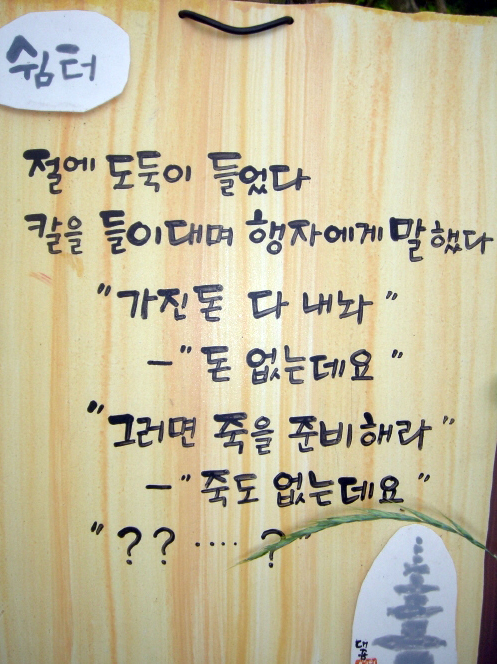 쉼터
절에 도둑이 들었다
칼을 들이대며 행자에게 말했다
"가진돈 다 내놔"
-"돈 없는데요"
"그러면 죽을 준비해라"
-"죽도 없는데요"
"?? .... ?"